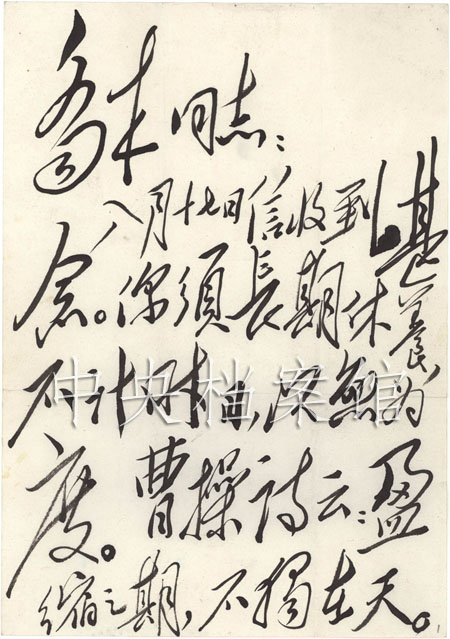 喬木同志:
八月十七日信收到,甚
念。你須長期休養,
不計时日,以愈为
度。曹操詩云:盈
縮之期,不獨在天。
中央档案馆